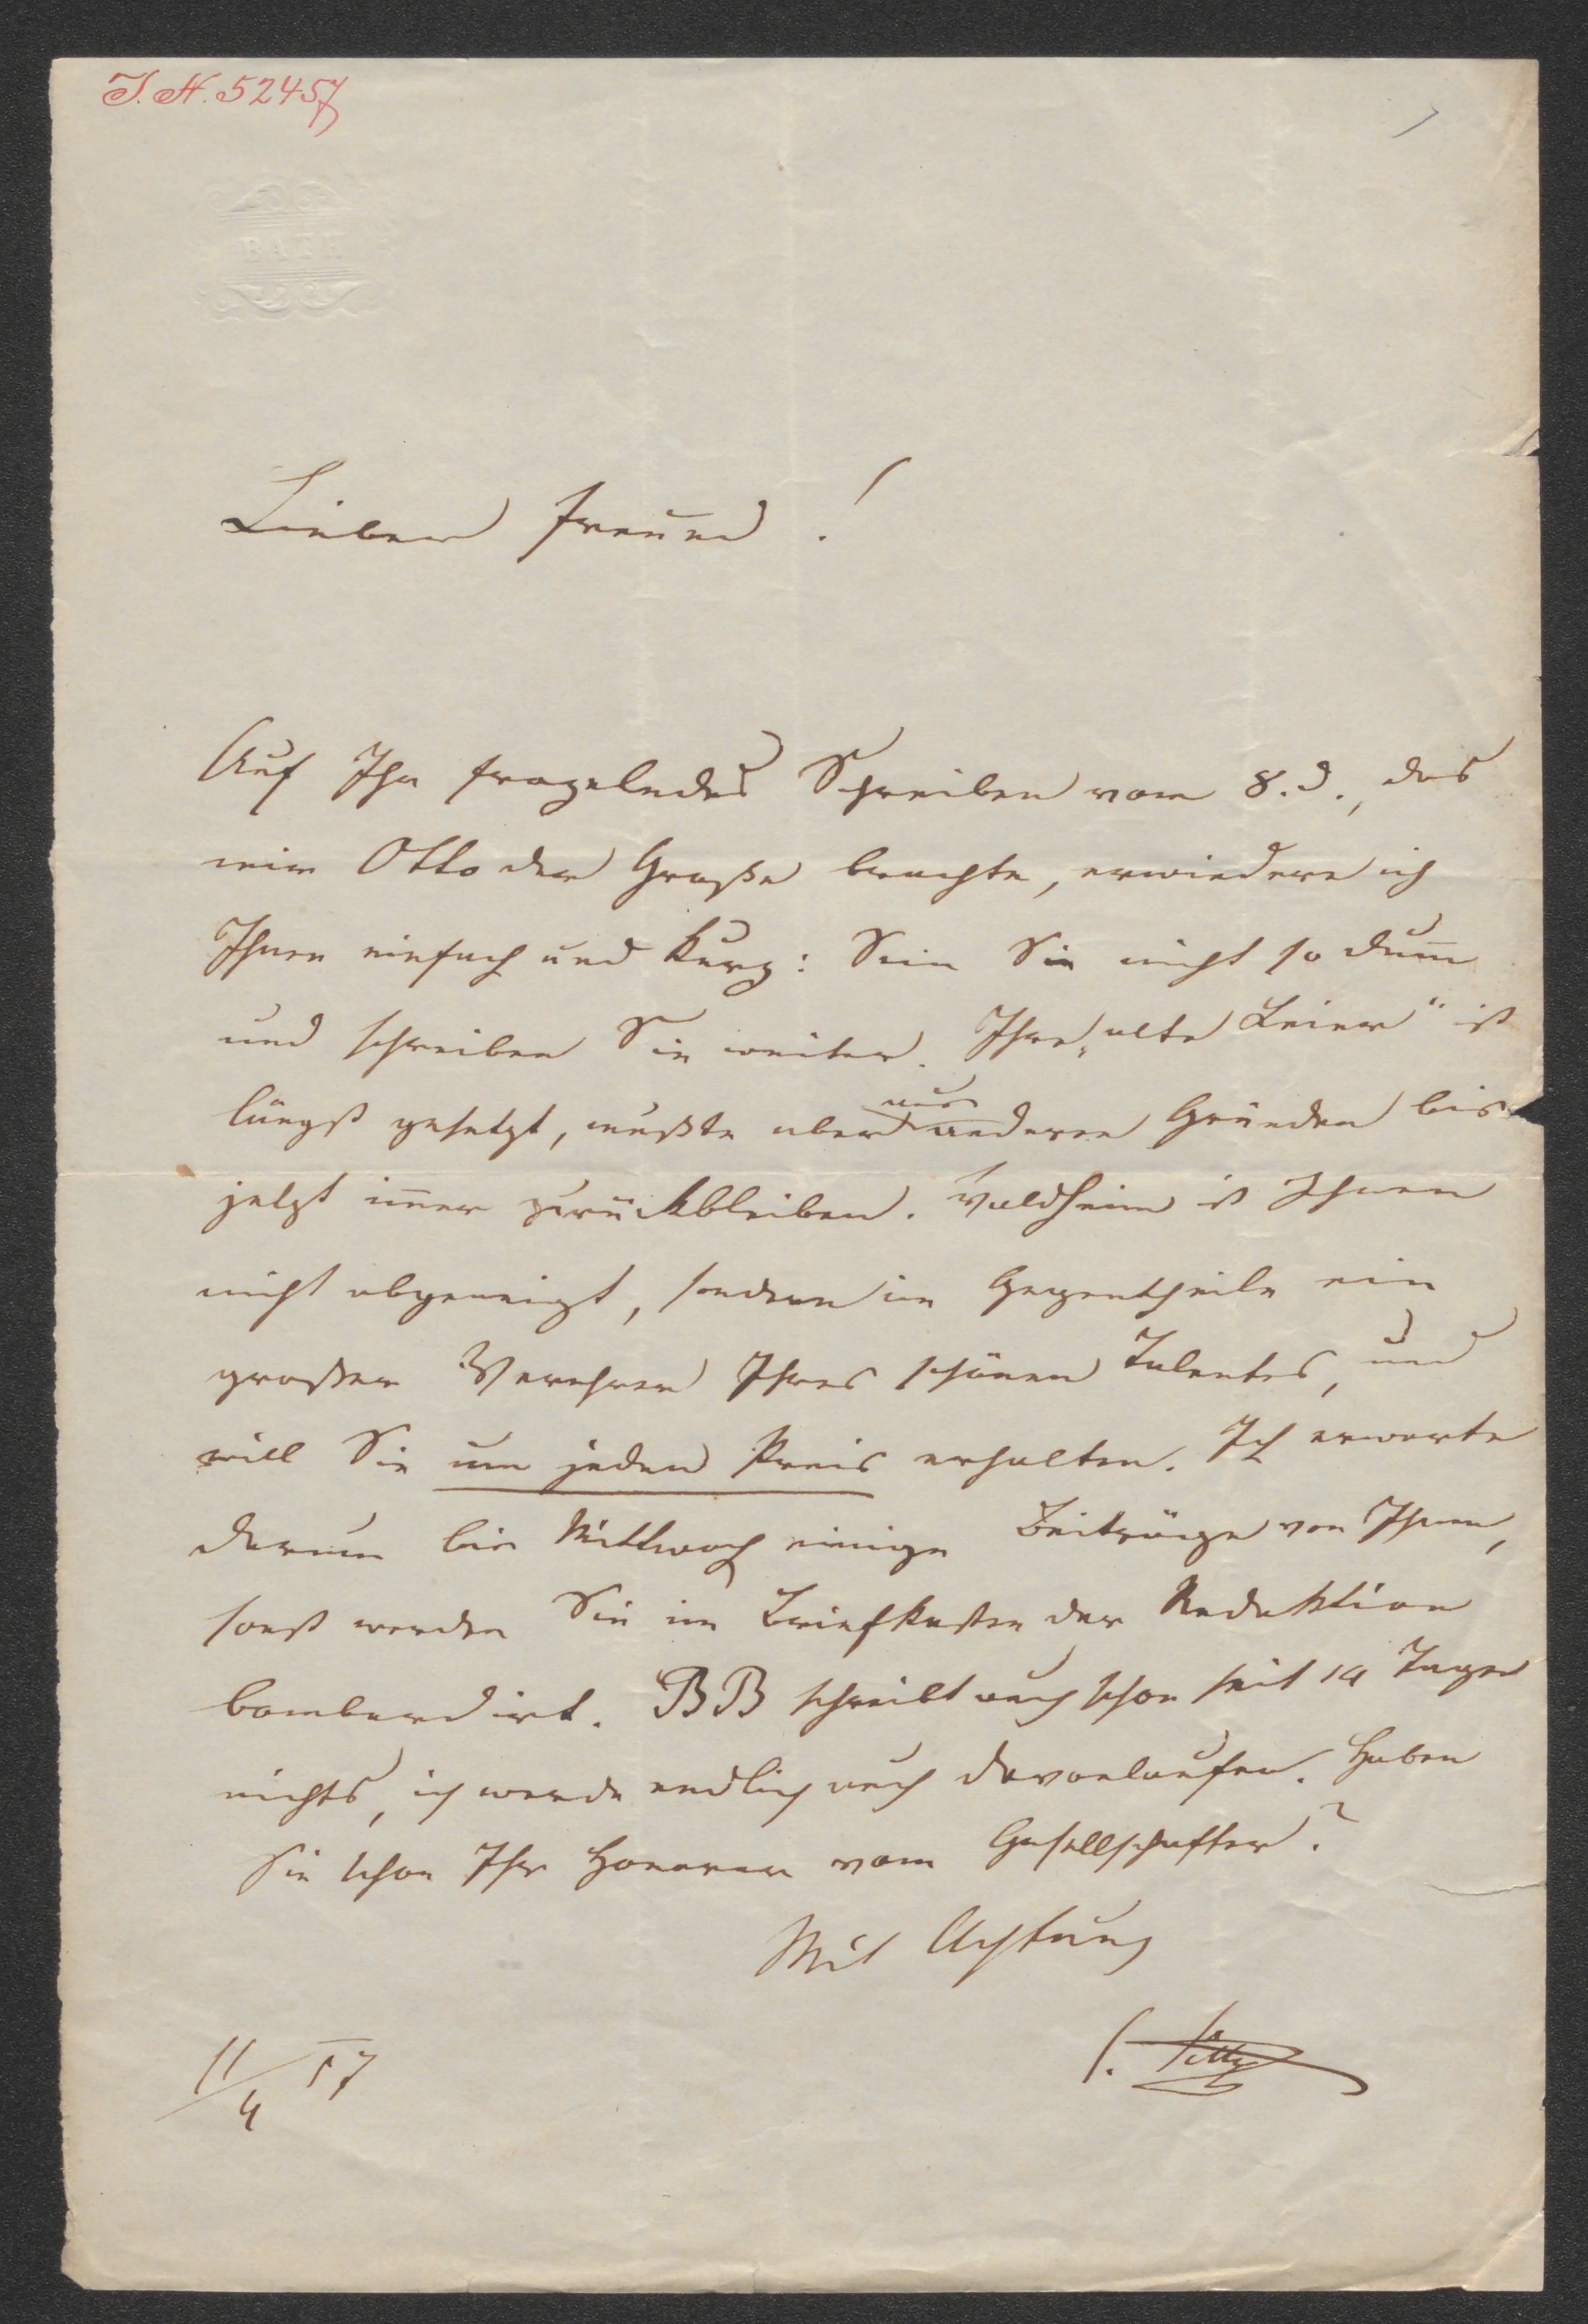 I. N. 52457
BATH
Lieber Freund!
Auf Ihr Schreiben vom 8. d., das
mir Otto der Große brachte, erwiedere ich
Ihnen einfach und kurz: Sein Sie nicht so dum̅
und schreiben Sie weiter. Ihre „alte Leier“ ist
längst gesetzt, mußte aber aus anderen Gründen bis
jetzt im̅er zurückbleiben. Waldheim ist Ihnen
nicht abgeneigt, sondern im Gegentheile ein
großer Verehrer Ihres schönen Talentes, und
will Sie um jeden Preis erhalten. Ich erwarte
darum bis Mittwoch einige Beiträge von Ihnen,
sonst werden Sie im Briefkasten der Redaktion
bombardirt. BB schreibt auch schon seit 14 Tagen
nichts, ich werde endlich auch davonlaufen. Haben
Sie schon Ihr Honorar vom Gesellschafter?
Mit Achtung
11/4 57